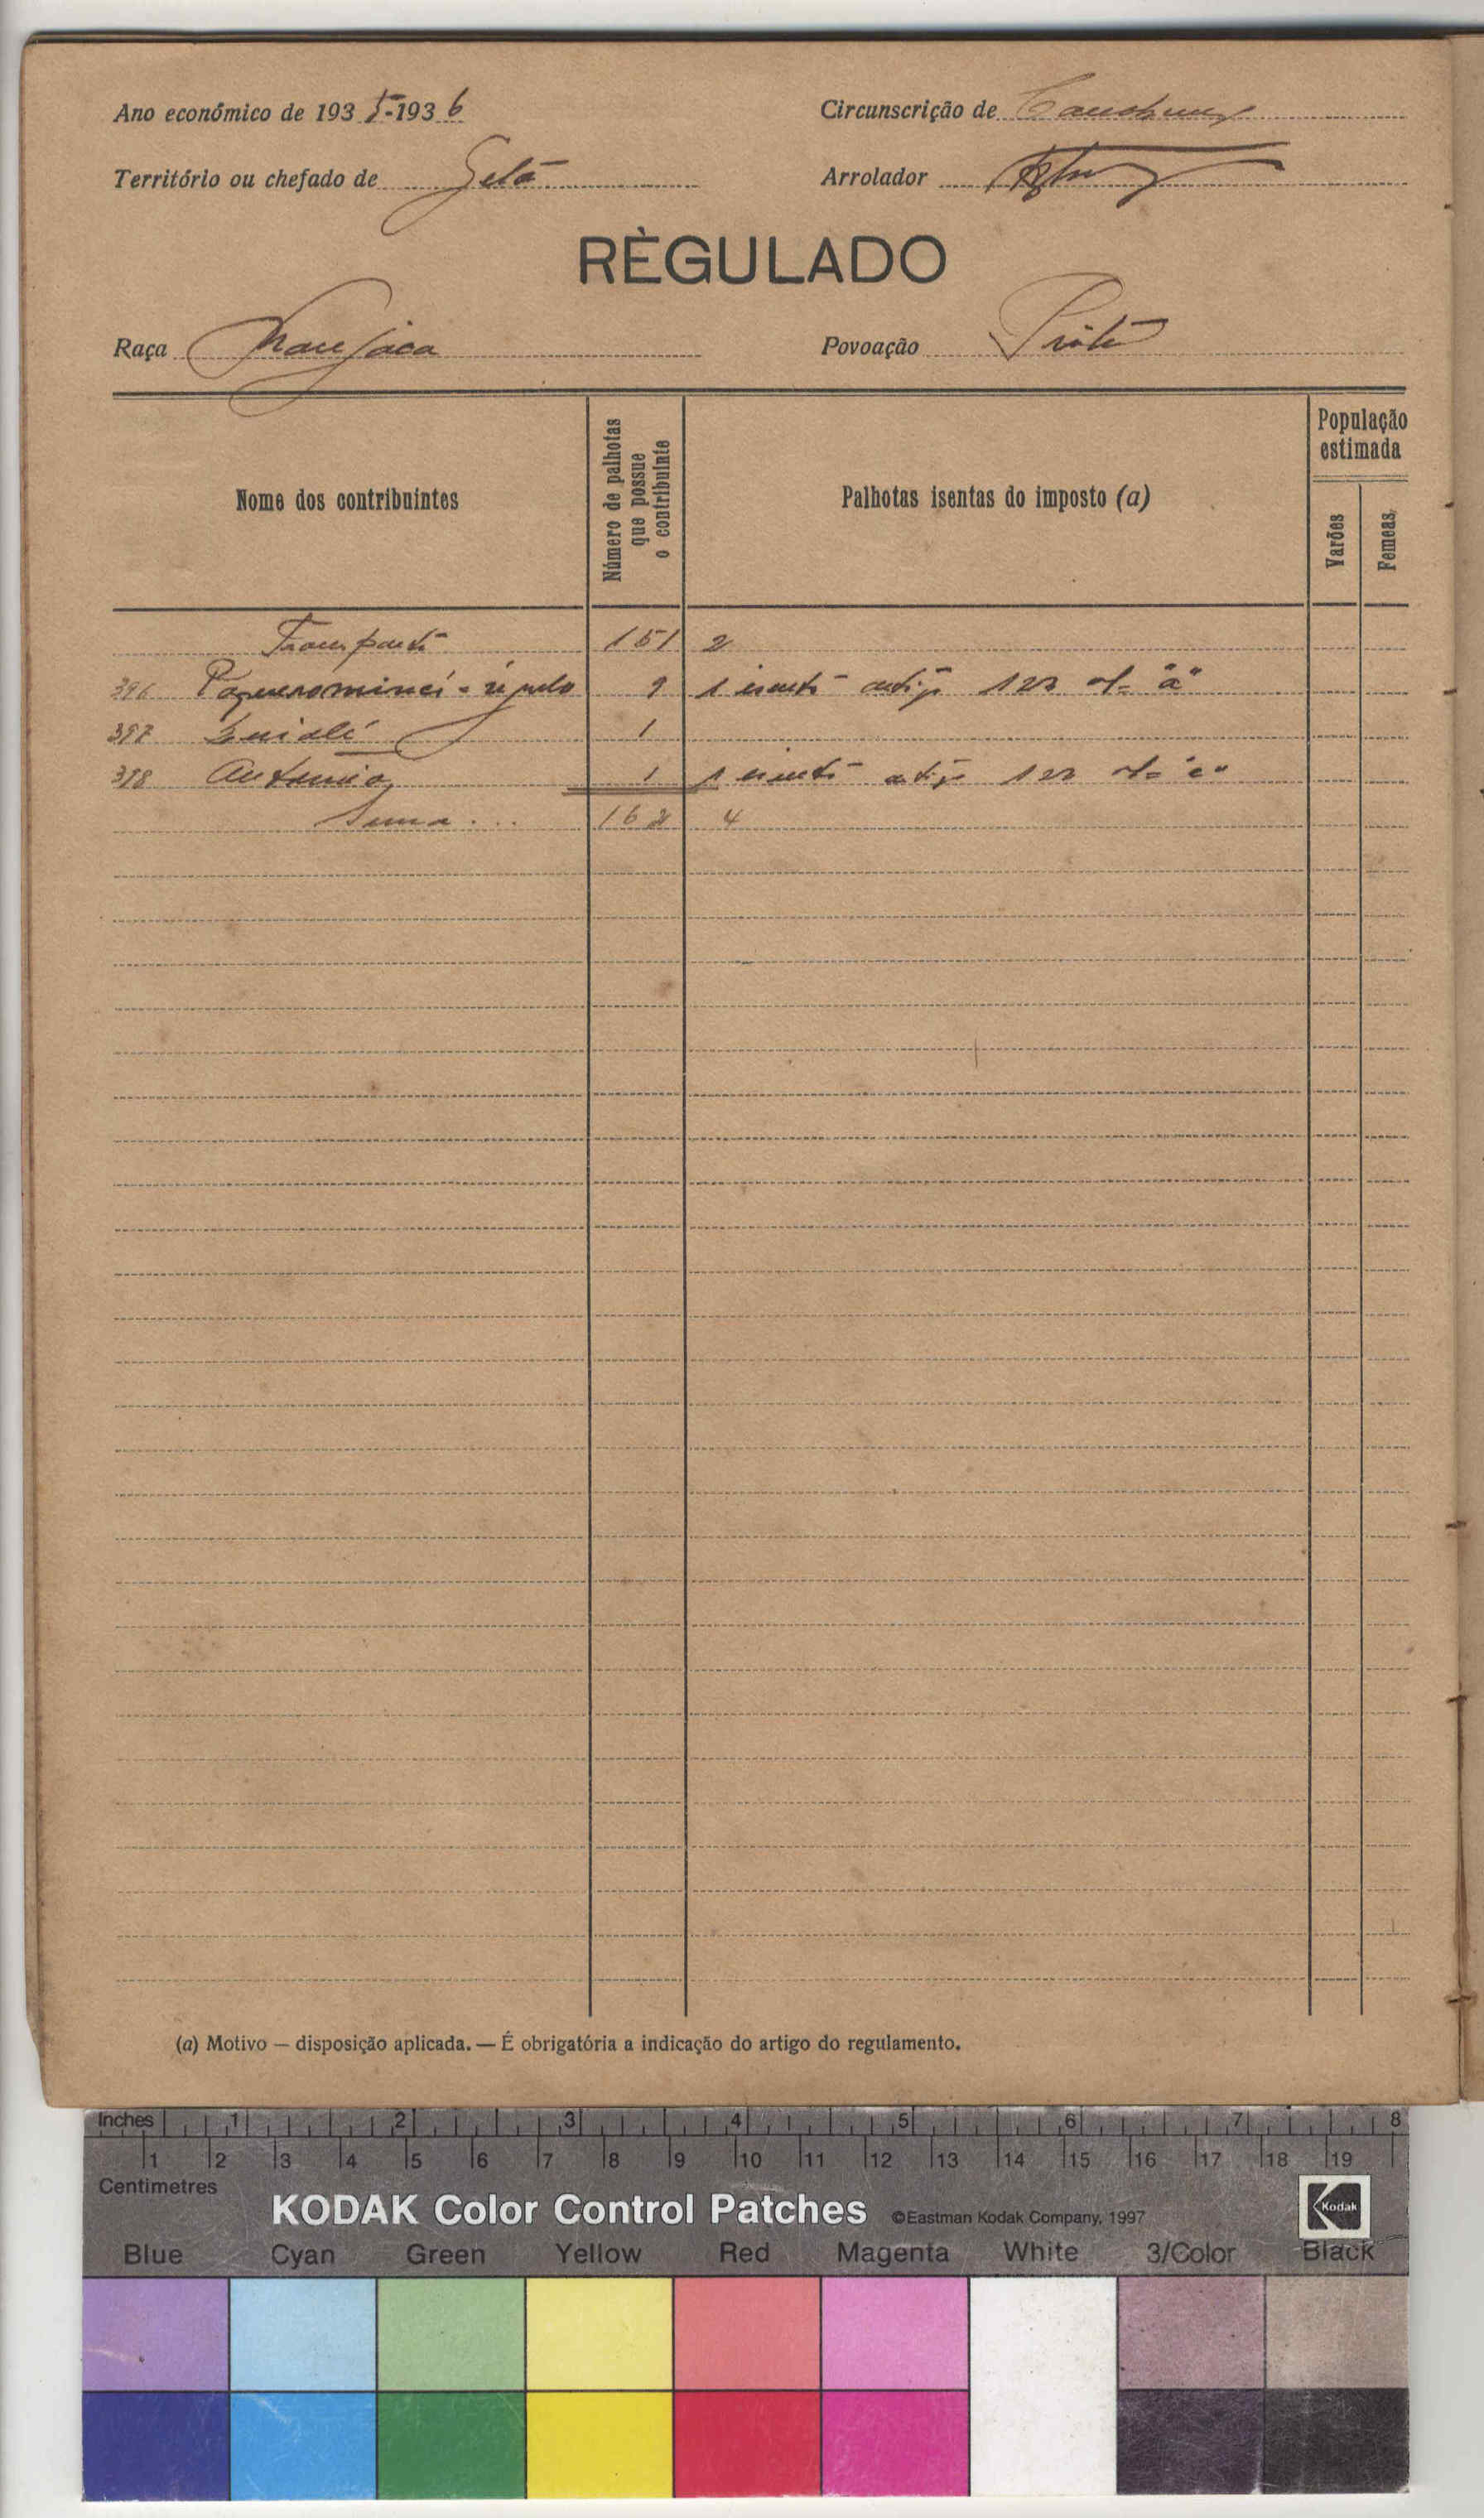 Ano económico de 1935-1936
Circunscrição de
Território ou chefado de Getá
Arrolador
RÈGULADO
Raça Manjaca
Povoação
Nome dos contribuintes
Número de palhotas que possue o contribuinte
Palhotas isentas do imposto (a)
População estimada
Varões
Femeas
Transporte 151 2
396 9 1 isenta artigo 122 "a"
397 1
398 Antonio 1 1 isenta artigo 122 "c"
Suma... 162 4
(a) Motivo — disposição aplicada. — É obrigatória a indicação do artigo do regulamento.
Inches 1 2 3 4 5 6 7 8
1 2 3 4 5 6 7 8 9 10 11 12 13 14 15 16 17 18 19
Centimetres
KODAK Color Control Patches ©Eastman Kodak Company, 1997 Kodak
Blue Cyan Green Yellow Red Magenta White 3/Color Black